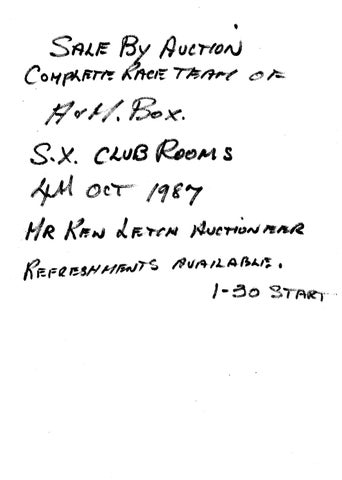 SALE BY AUCTION
COMPLETE RACE TEAM OF
A & M. BOX.
S.X. CLUB ROOMS
4TH OCT 1987
MR KEN LETCH AUCTIONEER
REFRESHMENTS AVAILABLE.
1-30 START